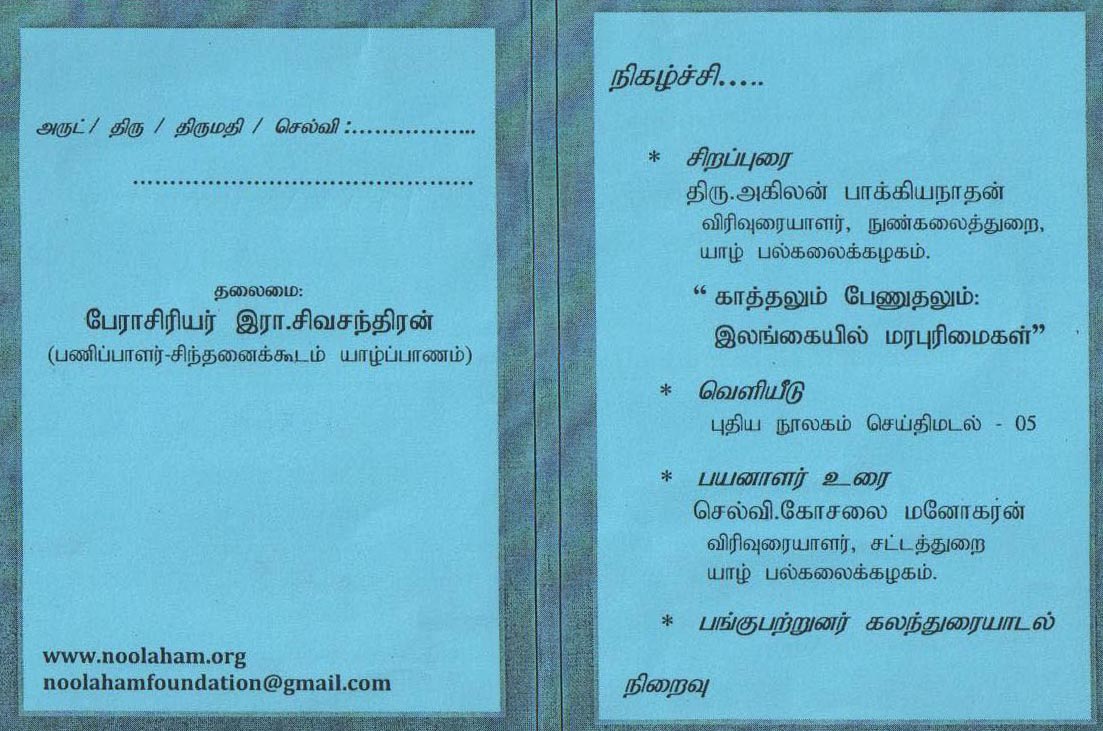 அருட் / திரு / திருமதி / செல்வி :...................
.............................................
தலைமை:
பேராசிரியர் இரா.சிவசந்திரன்
(பணிப்பாளர்-சிந்தனைக்கூடம் யாழ்ப்பாணம்)
www.noolaham.org
noolahamfoundation@gmail.com
நிகழ்ச்சி.....
* சிறப்புரை
திரு.அகிலன் பாக்கியநாதன்
விரிவுரையாளர், நுண்கலைத்துறை,
யாழ் பல்கலைக்கழகம்.
“ காத்தலும் பேணுதலும்:
இலங்கையில் மரபுரிமைகள்”
* வெளியீடு
புதிய நூலகம் செய்திமடல் - 05
* பயனாளர் உரை
செல்வி.கோசலை மனோகர்ன்
விரிவுரையாளர், சட்டத்துறை
யாழ் பல்கலைக்கழகம்.
* பங்குபற்றுனர் கலந்துரையாடல்
நிறைவு